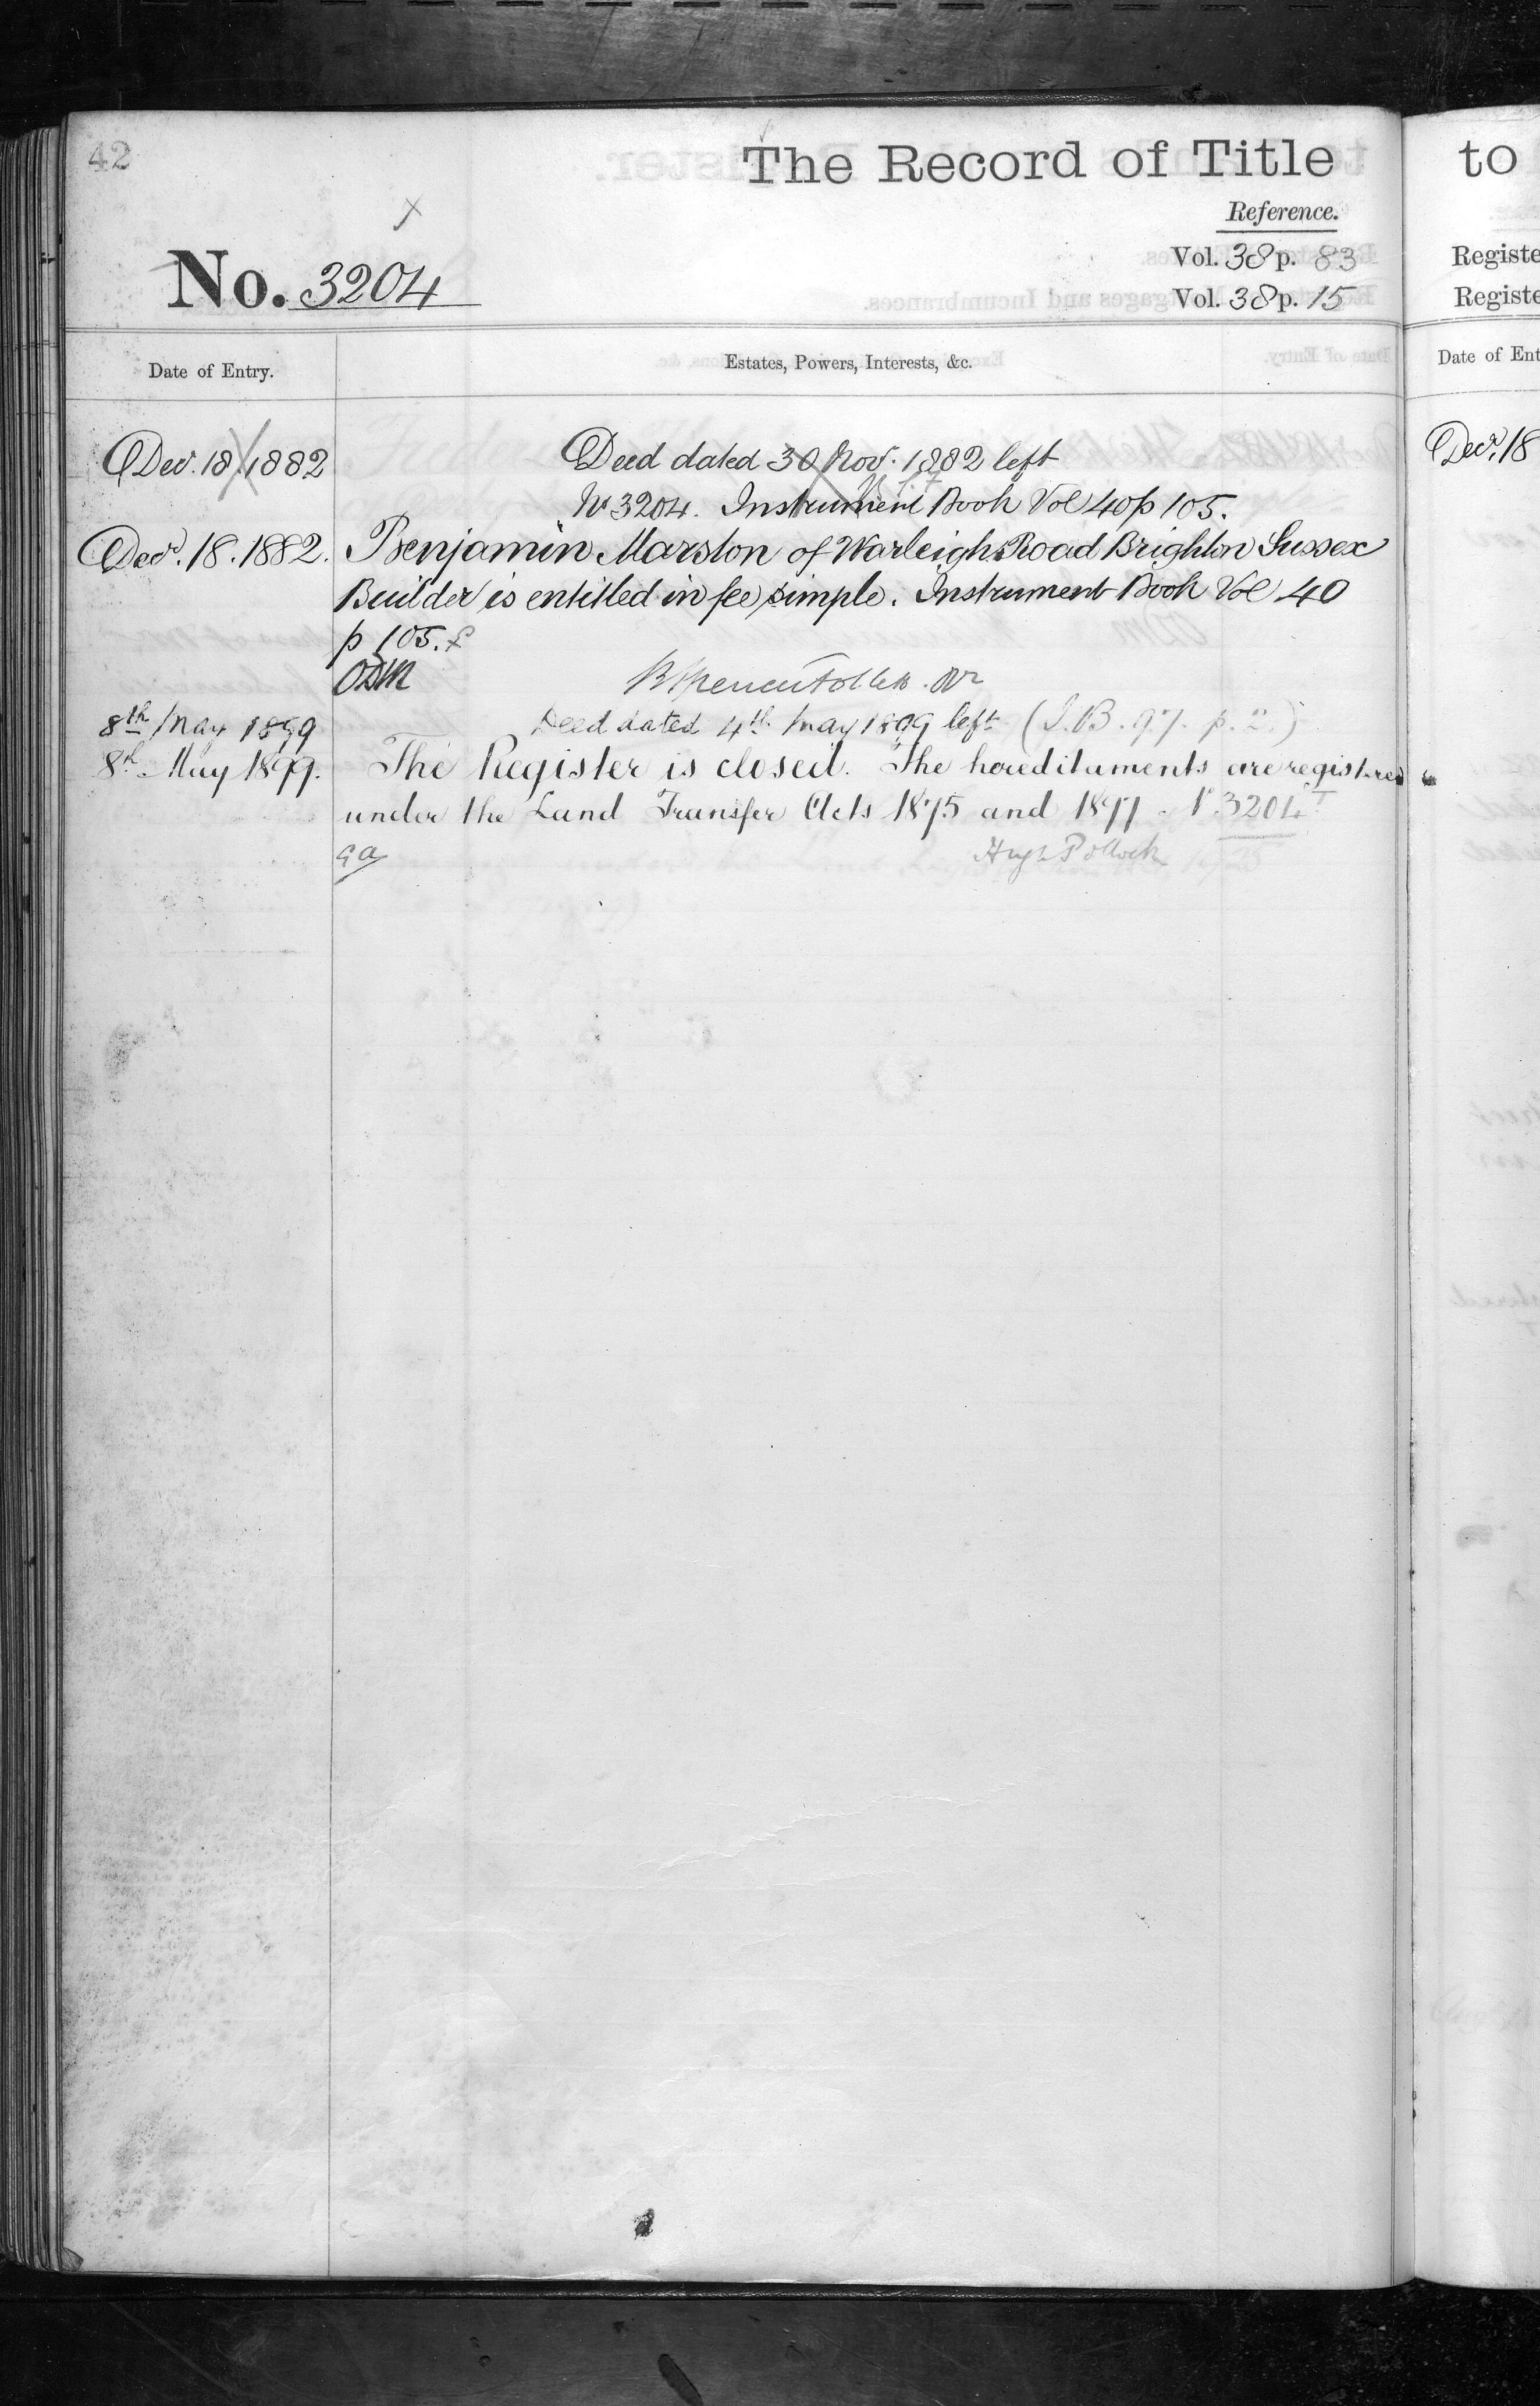 42
The Record of Title
to
Reference.
No. 3204
Vol. 38 p. 83
Vol. 38 p. 15
Registe
Registe
Date of Entry.
Estates, Powers, Interests, &c.
Date of Ent
Decr. 18. 1882
Deed dated 30 Nov. 1882 left
No 3204. Instrument Book Vol 40 p 105.
Decr. 18
Decr. 18. 1882.
Benjamin Marston of Warleigh Road Brighton Sussex
Builder is entitled in fee simple. Instrument Book Vol 40
p 105.
ODM
8th May 1899
Deed dated 4th May 1899 left (I.B. 97. p. 2.)
8th May 1899.
The Register is closed. The hereditaments are registered
under the Land Transfer Acts 1875 and 1897 - No. 3204
Hugh Pollock